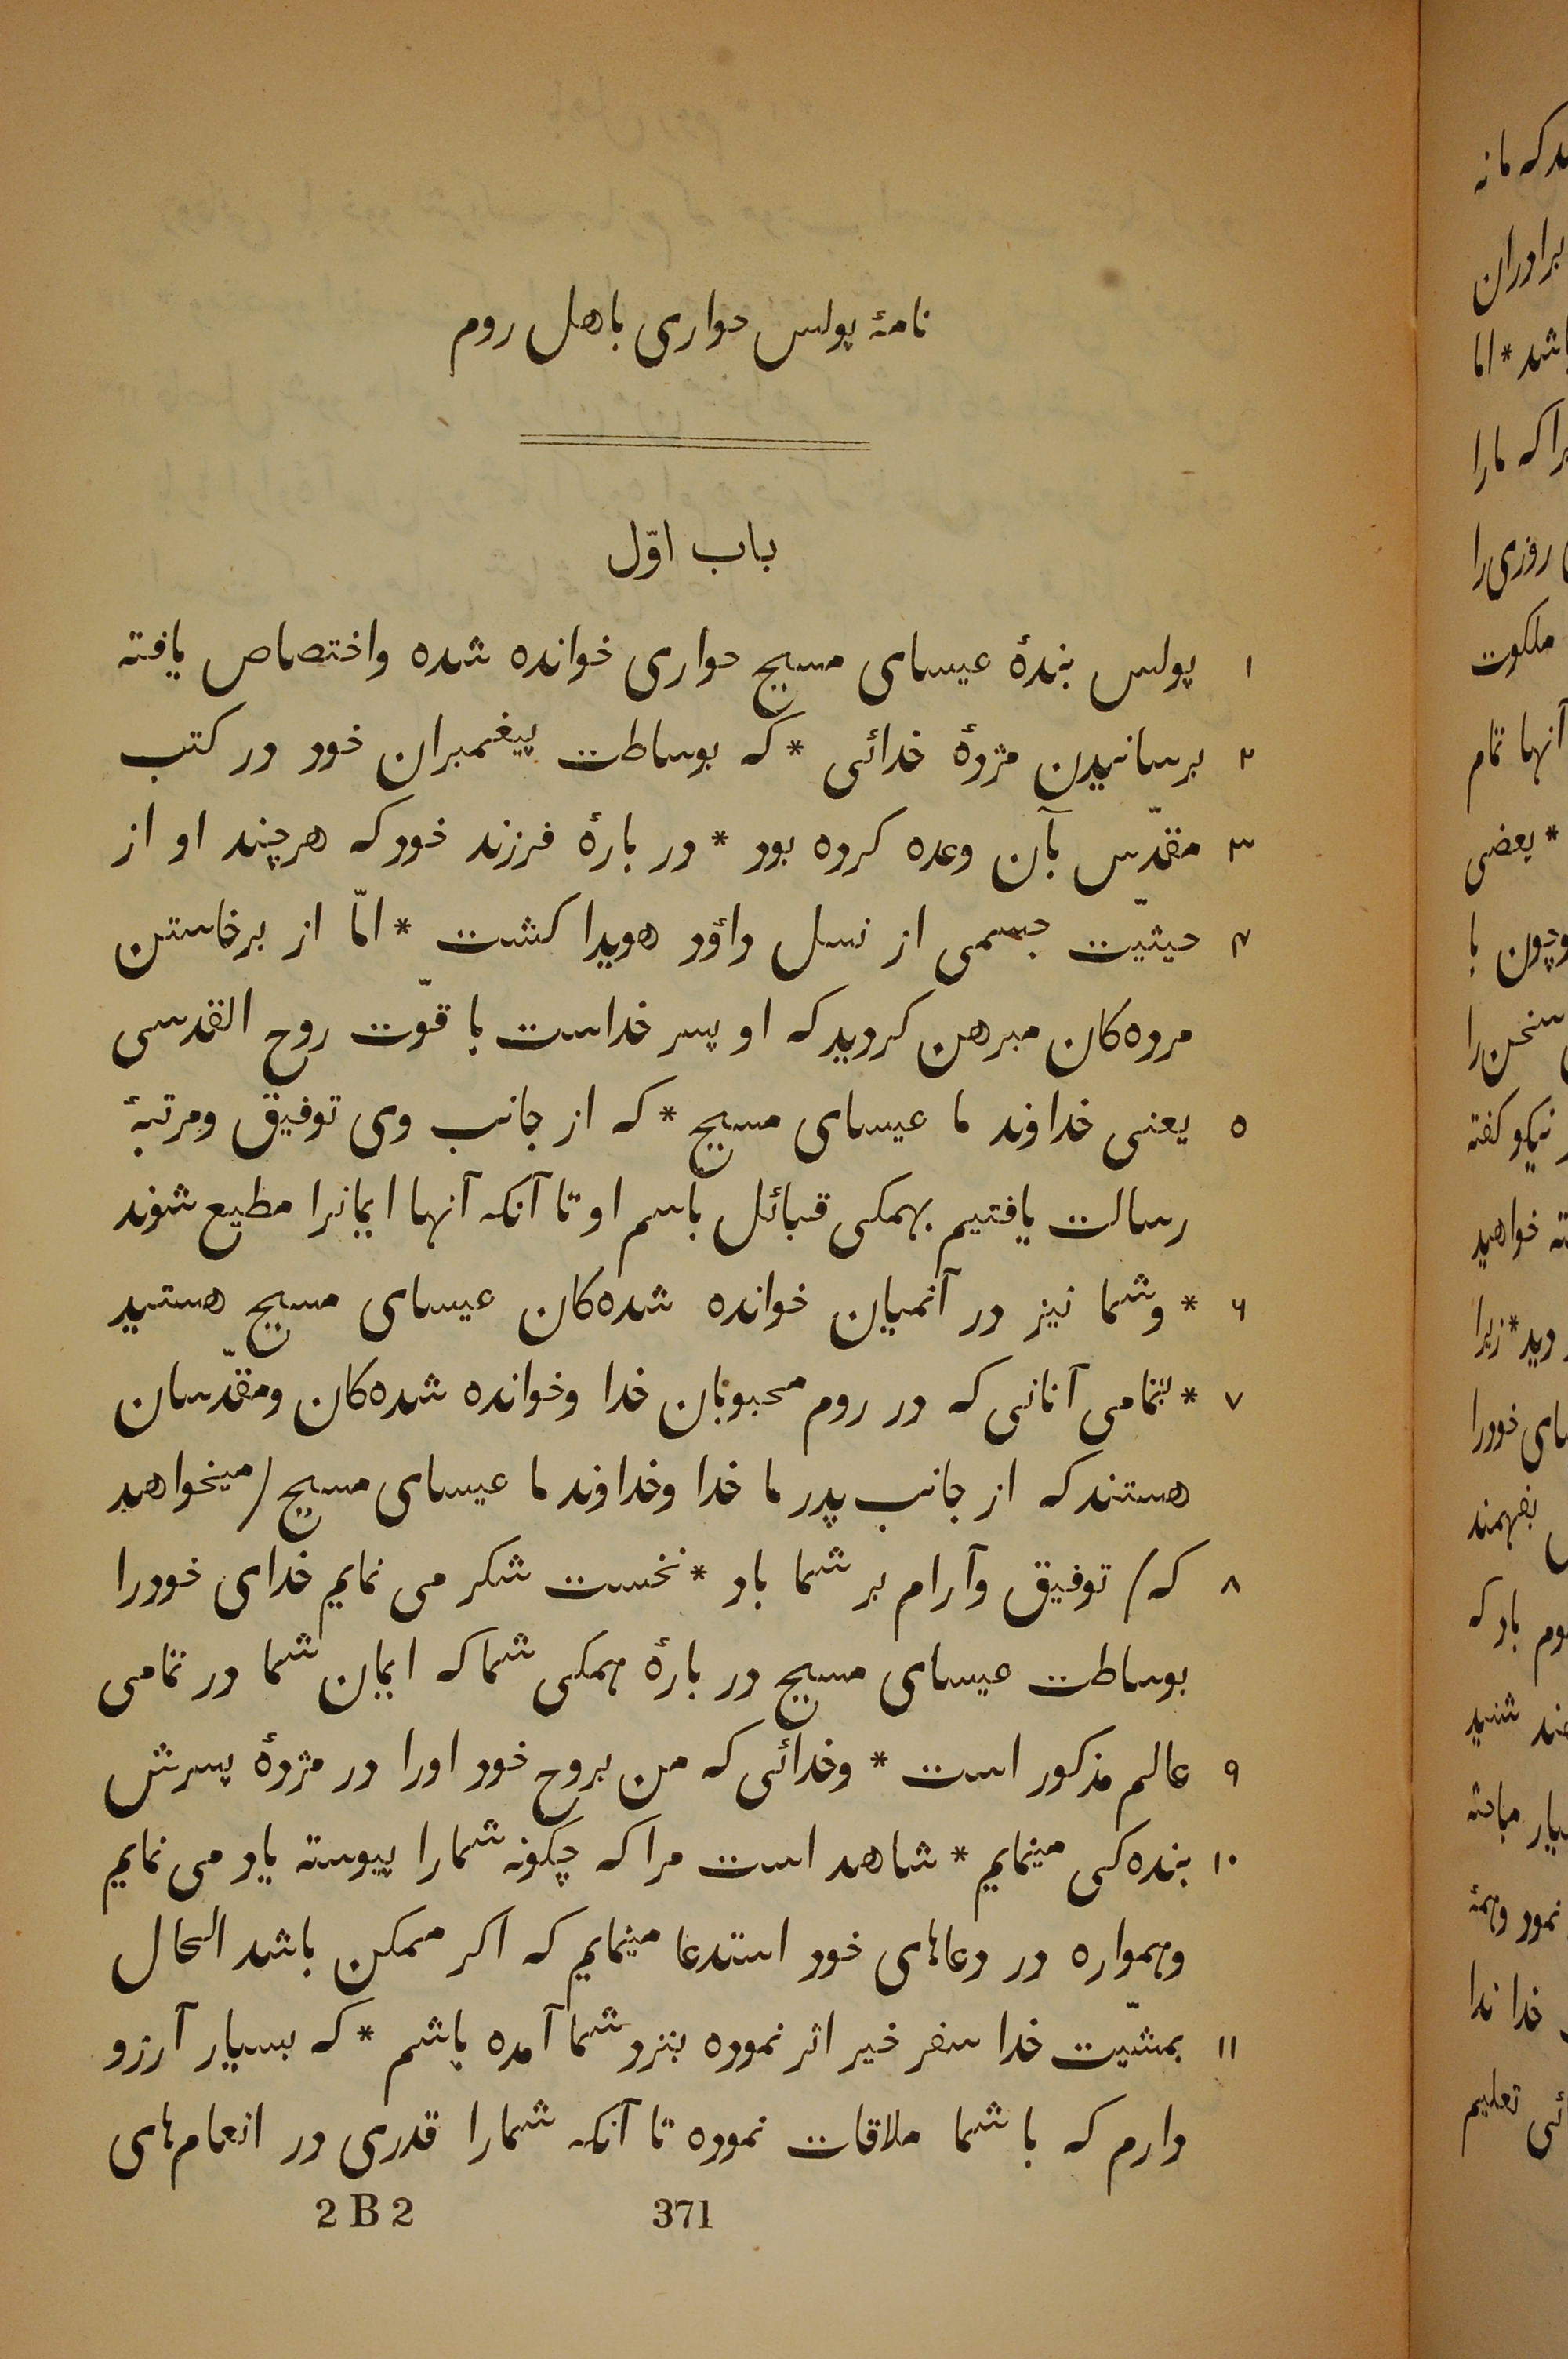 نامهٔ پولس حواری باهل روم
باب اوّل
۱ پولس بندهٔ عیسای مسیح حواری خوانده شده واختصاص یافته
۲ برسانیدن مژدهٔ خدائی * که بوساطت پیغمبران خود در کتب
۳ مقدّس بآن وعده کرده بود * در بارهٔ فرزند خود که هرچند او از
۴ حیثیّت جسمی از نسل داؤد هویدا کشت * امّا از برخاستن
مرده‌کان مبرهن کردید که او پسر خداست با قوّت روح القدسی
۵ یعنی خداوند ما عیسای مسیح * که از جانب وی توفیق ومرتبهٔ
رسالت یافتیم بهمکی قبائل باسم او تا آنکه آنها ایمانرا مطیع شوند
۶ * وشما نیز در آنمیان خوانده شده‌کان عیسای مسیح هستید
۷ * بتمامی آنانی که در روم محبوبان خدا وخوانده شده‌کان ومقدّسان
هستند که از جانب پدر ما خدا وخداوند ما عیسای مسیح / میخواهد
۸ که / توفیق وآرام بر شما باد * نخست شکر می نمایم خدای خودرا
بوساطت عیسای مسیح در بارهٔ همکی شما که ایمان شما در تمامی
۹ عالم مذکور است * وخدائی که من بروح خود اورا در مژدهٔ پسرش
۱۰ بنده‌کی مینمایم * شاهد است مرا که چکونه شمارا پیوسته یاد می نمایم
وهمواره در دعاهای خود استدعا مینمایم که اکر ممکن باشد الحال
۱۱ بمشیّت خدا سفر خیر اثر نموده بنزد شما آمده باشم * که بسیار آرزو
دارم که با شما ملاقات نموده تا آنکه شمارا قدری در انعام‌های
371 2 B 2